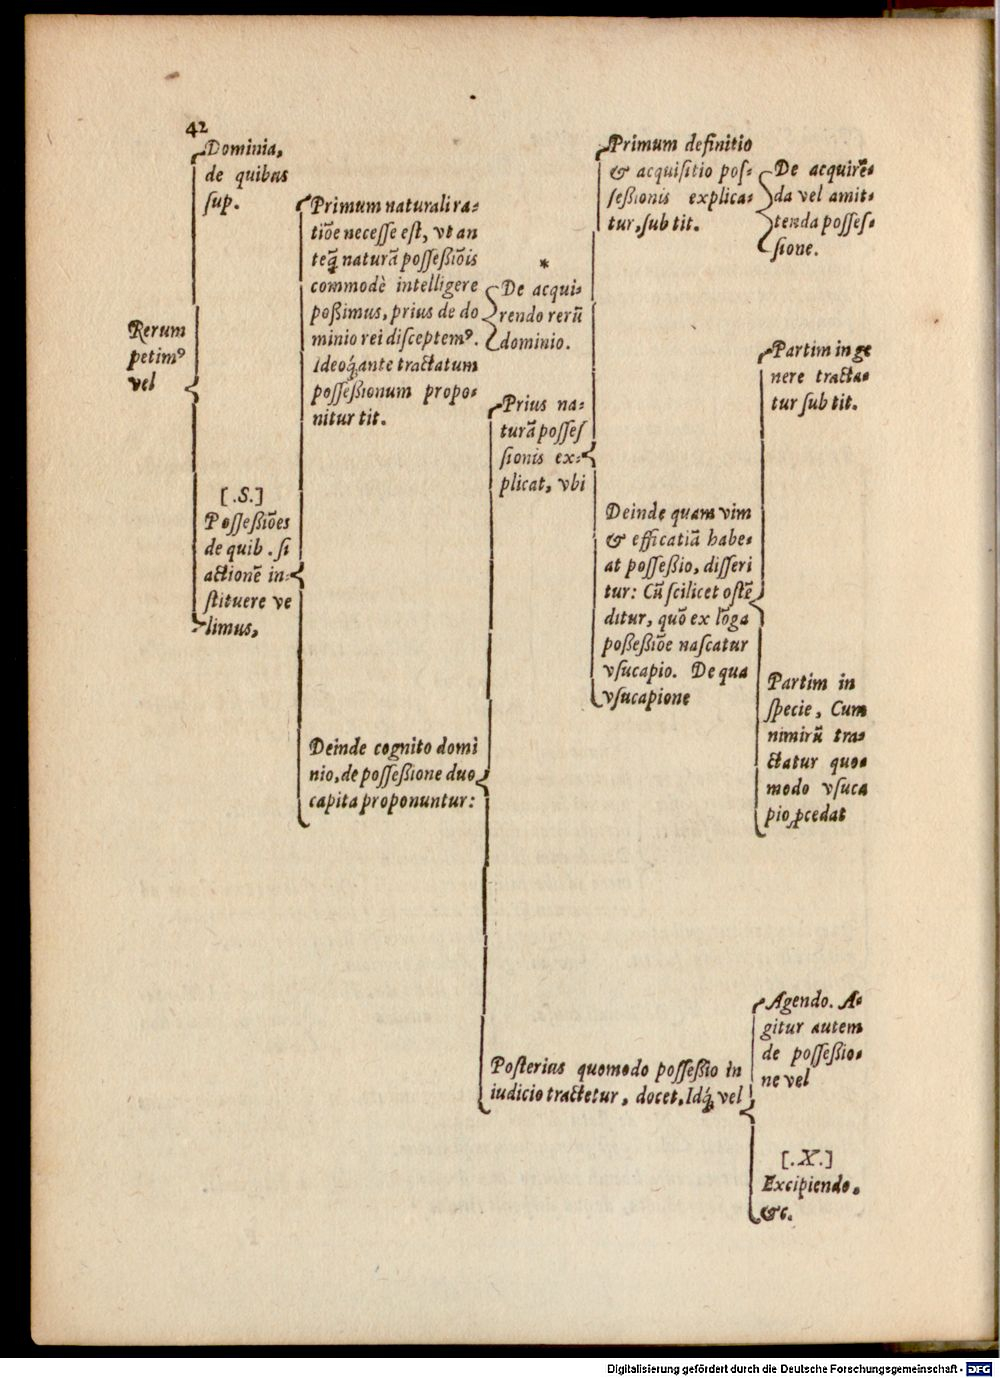 42
Rerum
petimꝰ
vel
Dominia,
de quibus
ſup.
[.S.]
Poſſeßiões
de quib. ſi
actionẽ in-
ſtituere ve
limus,
Primum naturali ra-
tiõe neceſſe eſt, vt an
teq̃ naturã poſſeßiõis
commodè intelligere
poßimus, prius de do
minio rei diſceptemꝰ.
Ideoq́; ante tractatum
poſſeßionum propo-
nitur tit.
*
De acqui-
rendo rerũ
dominio.
Deinde cognito domi
nio, de poſſeßione duo
capita proponuntur:
Prius na-
turã poſſeſ
ſionis ex-
plicat, vbi
Primum definitio
& acquiſitio poſ-
ſeßionis explica-
tur, ſub tit.
De acquirẽ-
da vel amit-
tenda poſſeſ-
ſione.
Deinde quam vim
& efficatiã habe-
at poſſeßio, diſſeri
tur: Cũ ſcilicet oſtẽ
ditur, quõ ex lõga
poßeßiõe naſcatur
vſucapio. De qua
vſucapione
Partim in ge
nere tracta-
tur ſub tit.
Partim in
ſpecie, Cum
nimirũ tra-
ctatur quo-
modo vſuca
pio ꝓcedat
Poſterius quomodo poſſeßio in
iudicio tractetur, docet. Idq́; vel
Agendo. A-
gitur autem
de poſſeßio-
ne vel
[.X.]
Excipiendo.
&c.
Digitalisierung gefördert durch die Deutsche Forschungsgemeinschaft - DFG